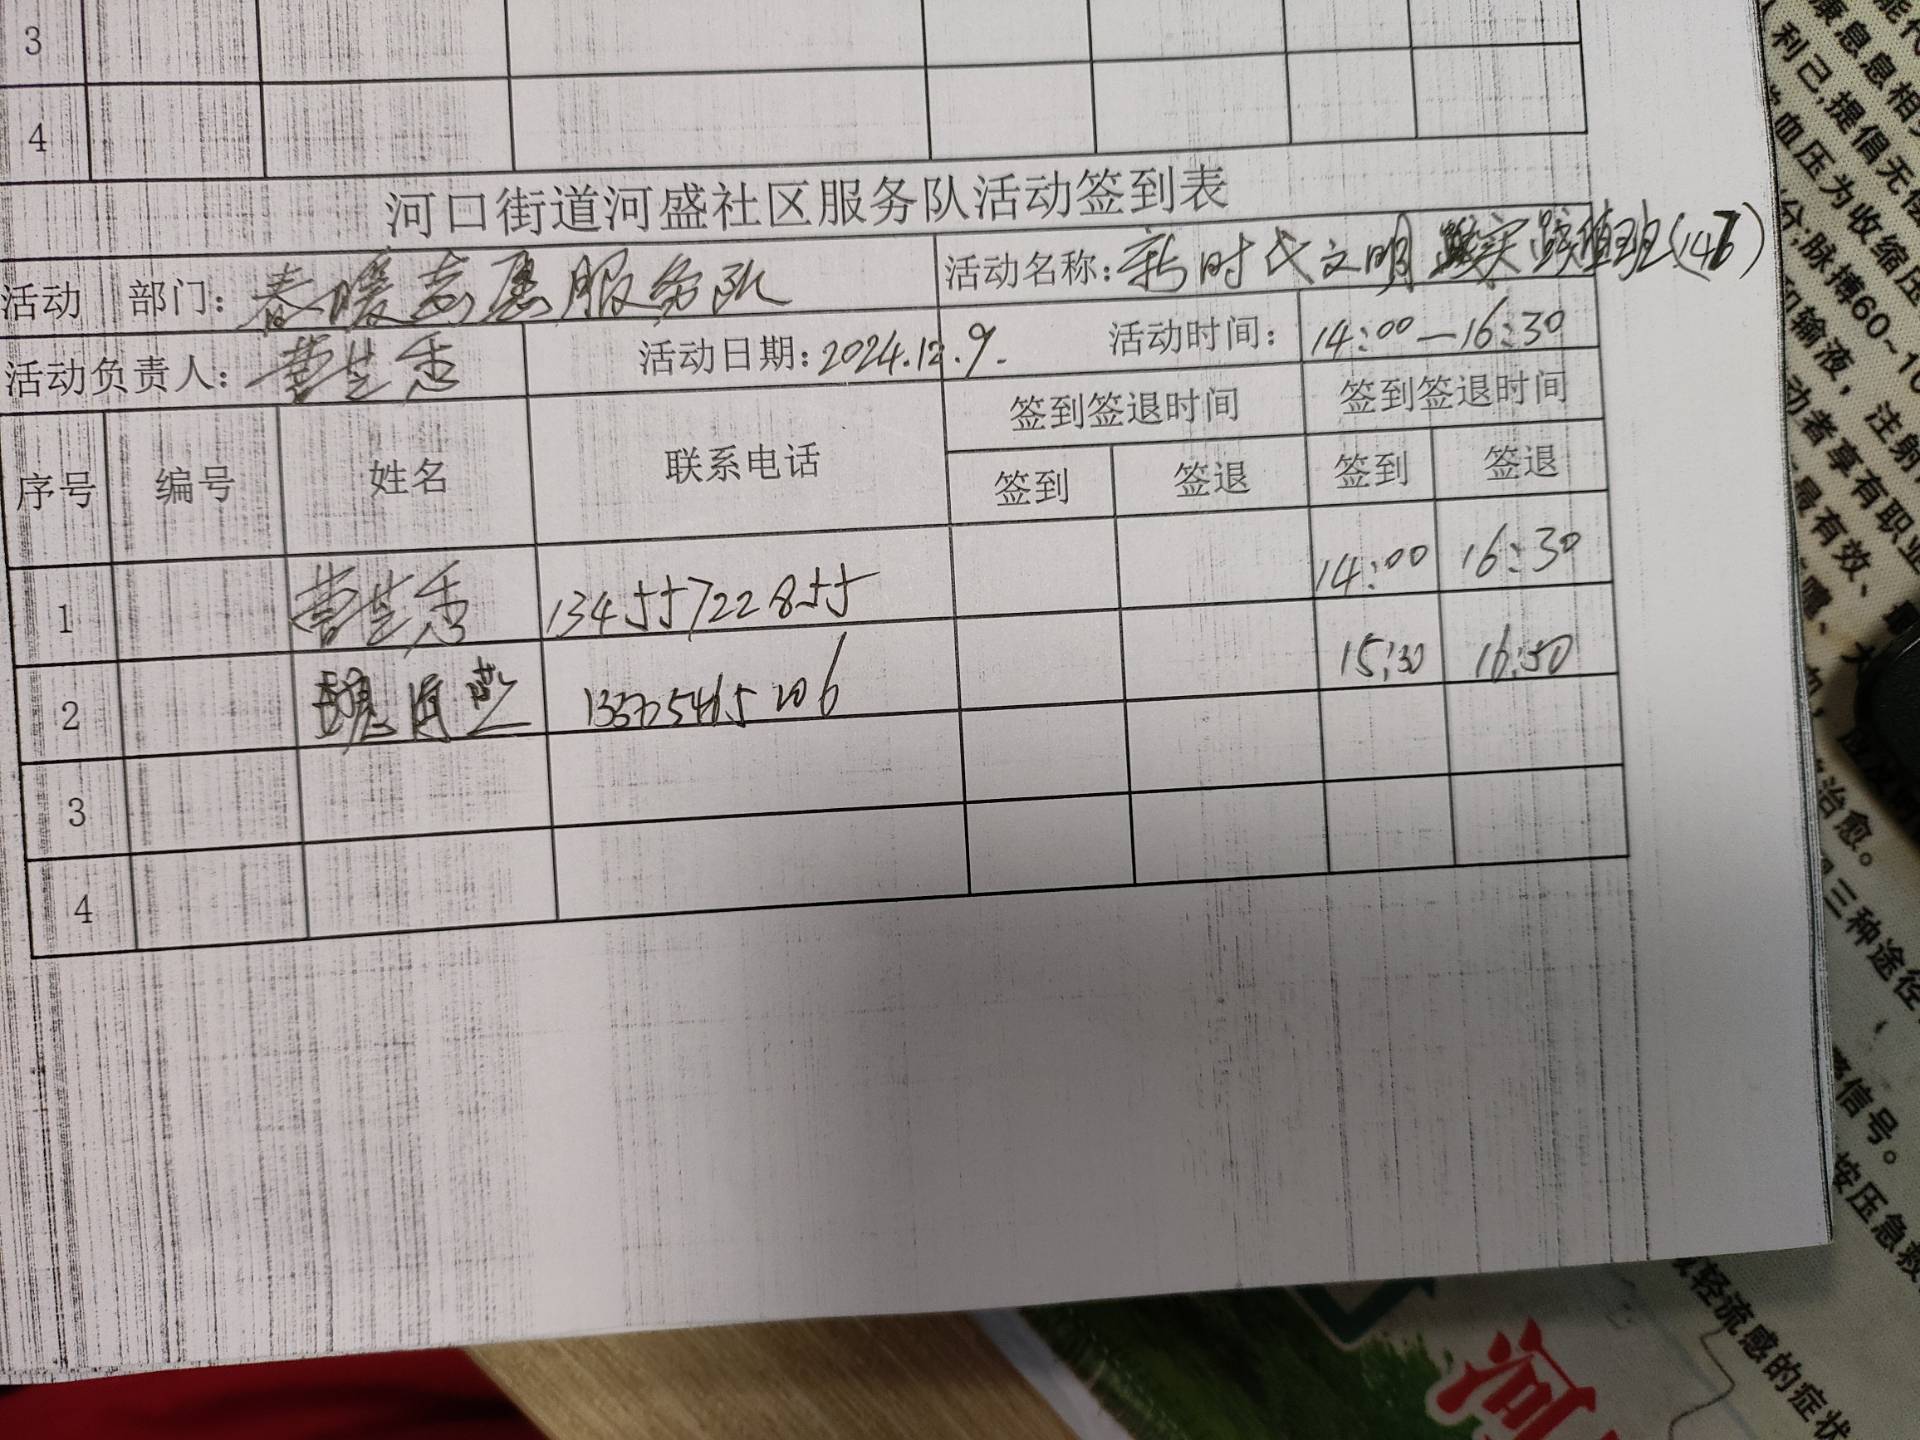 3
4
河口街道河盛社区服务队活动签到表
活动 部门：春暖志愿服务队 活动名称：新时代文明实践值班(147)
活动负责人： 活动日期：2024.12.9. 活动时间： 14:00—16:30
序号 编号 姓名 联系电话 签到签退时间 签到签退时间
签到 签退 签到 签退
1 13455722855 14:00 16:30
2 15:30 16:50
3
4
康息息相
利己，提倡无偿
血压为收缩压
分；脉搏60~10
和输液，注射
动者享有职业
最有效、最
治愈。
三种途径
信号。
按压急救
轻流感的症状
河